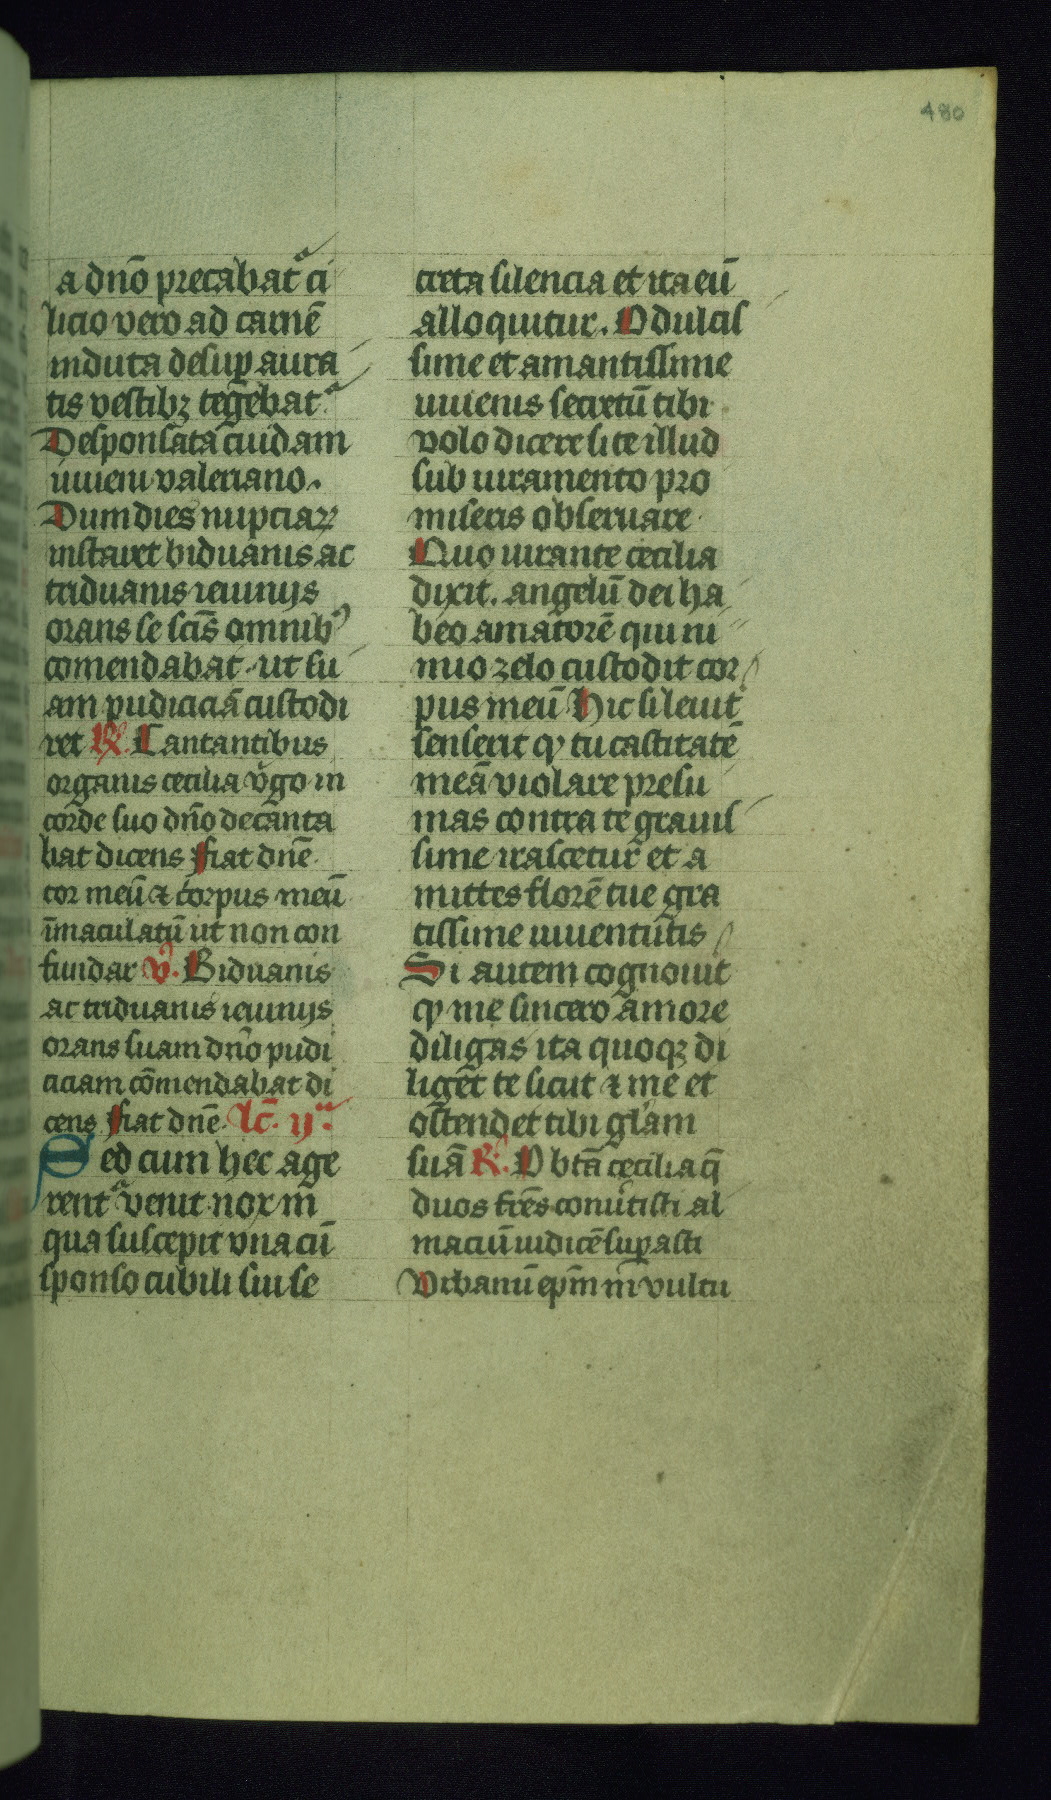 480
a dnō precabatᵃ ci
licio vero ad carnē
induta desuꝑ aura
tis vestibꝫ tegebatᵃ
Desponsata cuidam
iuueni valeriano.
Dum dies nupciaꝝ
instaret biduanis ac
triduanis ieiunijs
orans se scīs omnibꝰ
comendabat ut su
am pudiciciā custodi
ret ℟. Cantantibus
organis cecilia v̓go in
corde suo dn̄o decanta
bat dicens fiat dnē
cor meū ⁊ corpus meū
īmaculatū ut non con
fundar v̓. Biduanis
ac triduanis ieiunijs
orans suam dn̄o pudi
ciciam cōmendabat di
cens fiat dnē. lc̄. ijᵃ.
Sed cum hec age
rentᵃ venit nox in
qua suscepit vna cū
sponso cubili sui se
creta silencia et ita eū
alloquitur. O dulcis
sime et amantissime
iuuenis secretū tibi
volo dicere si te illud
sub iuramento pro
miseris obseruare
Quo iurante cecilia
dixit. angelū dei ha
beo amatorē qui ni
mio zelo custodit cor
pus meū Hic si leuit̓
senserit ꝙ tu castitatē
meā violare presu
mas contra te grauis
sime irascetur et a
mittes florē tue gra
tissime iuuentutis
Si autem cognouit̓
ꝙ me sincero amore
diligas ita quoqꝫ di
liget te sicut ⁊ me et
ostendet tibi glam
suā ℟. O btā cecilia q̄
duos frēs conu̓tisti al
maciū iudicē suꝑasti
Vrbanū epm̄ in vultu